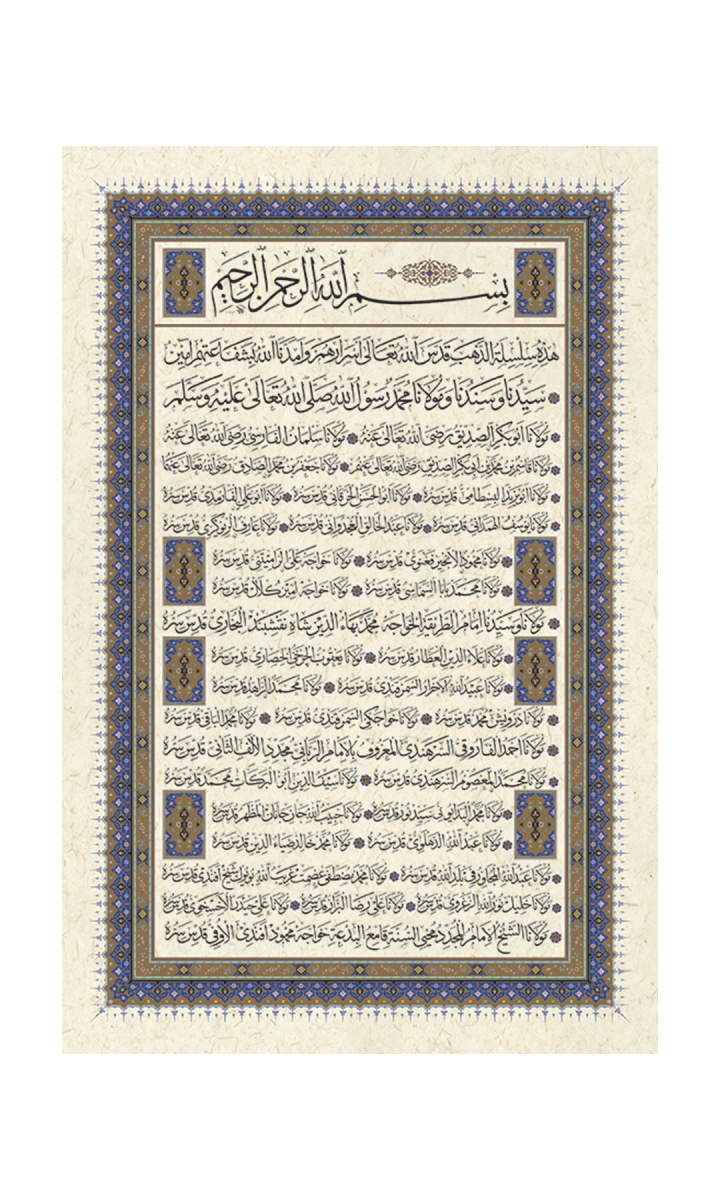 بسم الله الرحمن الرحيم
هذه سلسلة الذهب قدس الله تعالى اسرارهم وامدنا الله بشفاعتهم امين
سيدنا وسندنا ومولانا محمد رسول الله صلى الله تعالى عليه وسلم
مولانا ابو بكر الصديق رضى الله تعالى عنه مولانا سلمان الفارسى رضى الله تعالى عنه
مولانا قاسم بن محمد بن ابى بكر الصديق رضى الله تعالى عنهم مولانا جعفر بن محمد الصادق رضى الله تعالى عنهما
مولانا ابو يزيد البسطامى قدس سره مولانا ابو الحسن الخرقانى قدس سره مولانا ابو على الفارمدى قدس سره
مولانا يوسف الهمدانى قدس سره مولانا عبد الخالق الغجدوانى قدس سره مولانا عارف الريوكرى قدس سره
مولانا محمود الانجير فغنوى قدس سره مولانا خواجه على الراميتنى قدس سره
مولانا محمد بابا السماسى قدس سره مولانا خواجه امير كلال قدس سره
مولانا وسيدنا امام الطريقة الخواجه محمد بهاء الدين شاه نقشبند البخارى قدس سره
مولانا علاء الدين العطار قدس سره مولانا يعقوب الجرخى الحصارى قدس سره
مولانا عبيد الله الاحرار السمرقندى قدس سره مولانا محمد الزاهد قدس سره
مولانا درويش محمد قدس سره مولانا خواجكى السمرقندى قدس سره مولانا محمد الباقى قدس سره
مولانا احمد الفاروقى السرهندى المعروف بالامام الربانى مجدد الالف الثانى قدس سره
مولانا محمد المعصوم السرهندى قدس سره مولانا سيف الدين ابو البركات محمد قدس سره
مولانا محمد البدايونى سيد نور قدس سره مولانا حبيب الله جان جانان المظهر قدس سره
مولانا عبد الله الدهلوى قدس سره مولانا محمد خالد ضياء الدين قدس سره
مولانا عبد الله المجاور فى بلد الله قدس سره مولانا محمد مصطفى عصمت غريب الله شيخ افندى قدس سره
مولانا خليل نور الله الزغروى قدس سره مولانا على رضا البزاز قدس سره مولانا على حيدر الاخسخوى قدس سره
مولانا الشيخ الامام المجدد محيى السنة قامع البدعة خواجه محمود افندى الاوفى قدس سره